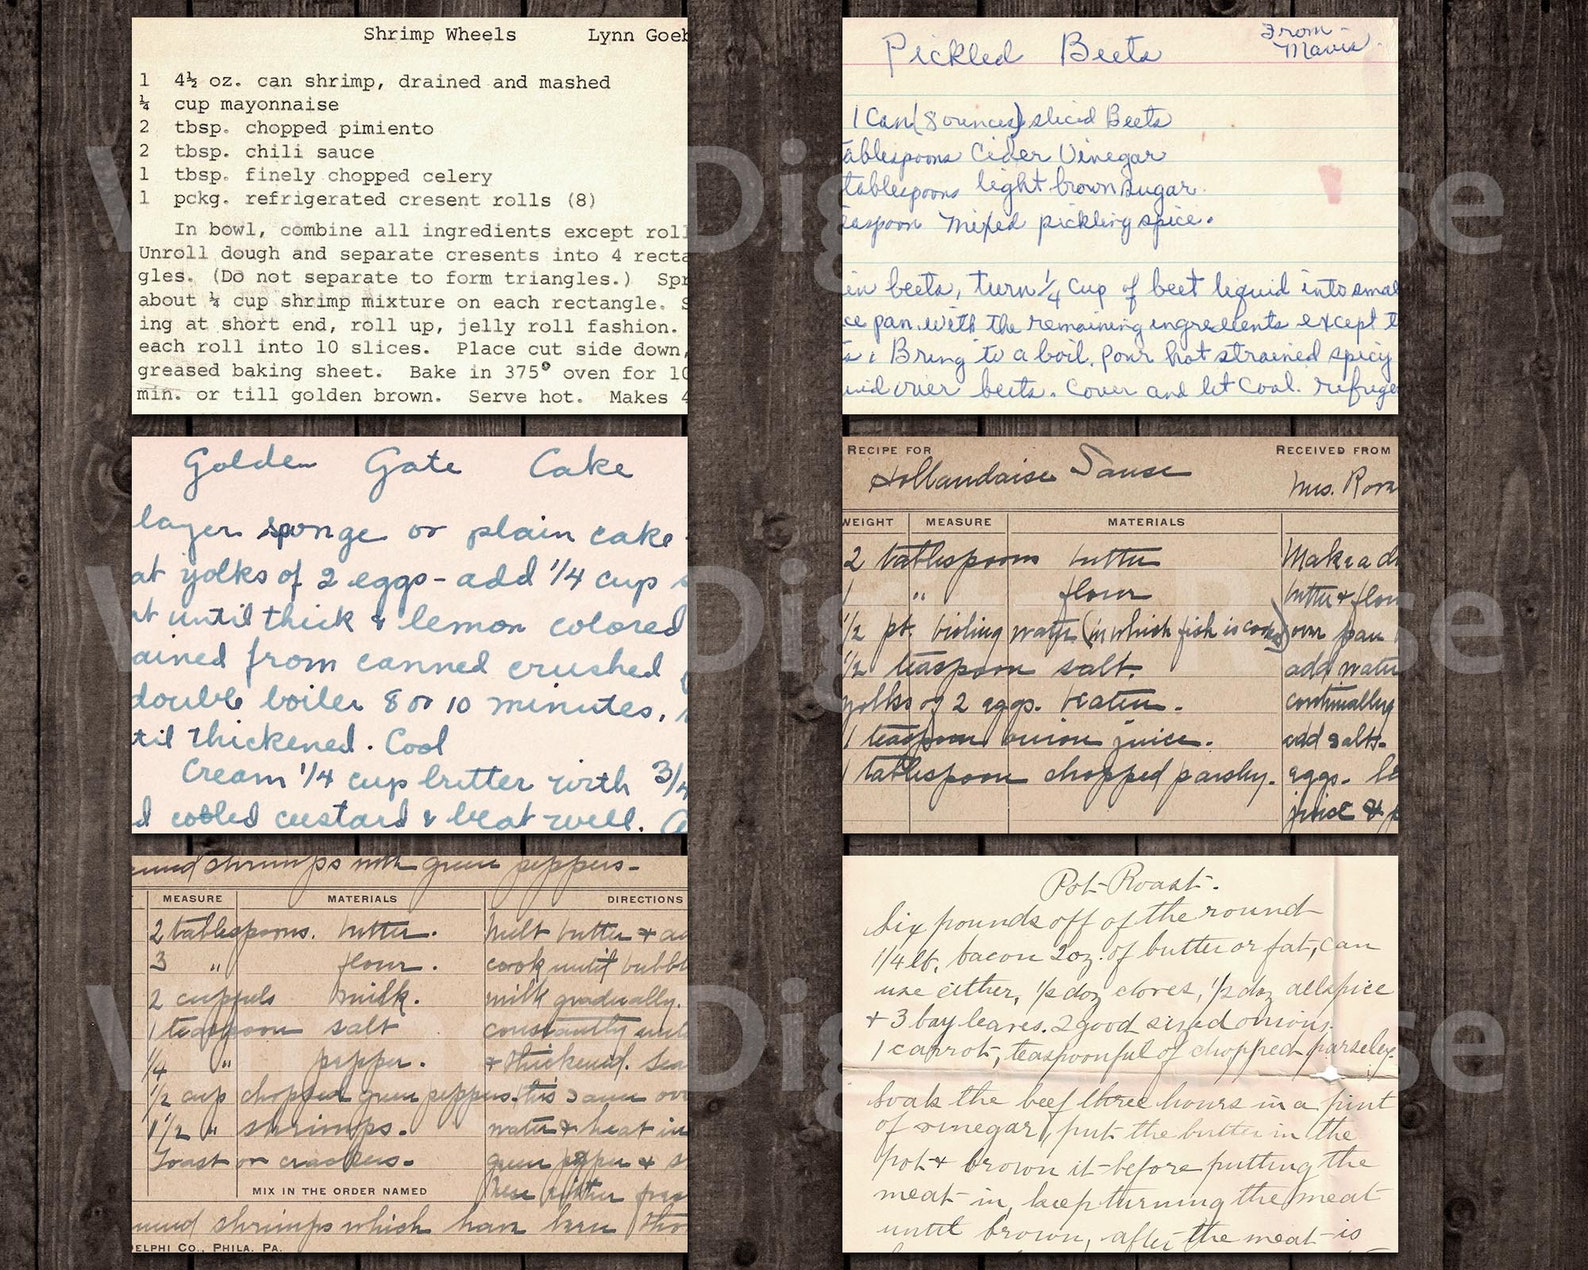 Shrimp Wheels Lynn Goeb
1 4½ oz. can shrimp, drained and mashed
¼ cup mayonnaise
2 tbsp. chopped pimiento
2 tbsp. chili sauce
1 tbsp. finely chopped celery
1 pckg. refrigerated cresent rolls (8)
In bowl, combine all ingredients except roll
Unroll dough and separate cresents into 4 recta
gles. (Do not separate to form triangles.) Spr
about ¼ cup shrimp mixture on each rectangle. S
ing at short end, roll up, jelly roll fashion.
each roll into 10 slices. Place cut side down,
greased baking sheet. Bake in 375° oven for 10
min. or till golden brown. Serve hot. Makes 4
Pickled Beets From-
Mavis
1 Can (8 ounces) sliced Beets
ablespoons Cider Vinegar
tablespoons light brown sugar.
easpoon mixed pickling spice.
in beets, turn ¼ cup of beet liquid into smal
ce pan. with the remaining ingredients except t
s. Bring to a boil. Pour hot strained spicy
uid over beets. Cover and let cool. refrige
Golden Gate Cake
layer sponge or plain cake
at yolks of 2 eggs - add 1/4 cup s
at until thick & lemon colored
ained from canned crushed
double boiler 8 or 10 minutes.
til thickened. Cool
Cream 1/4 cup butter with 3/4
d cooled custard & beat well.
RECIPE FOR RECEIVED FROM
Hollandaise Sause Mrs. Rora
WEIGHT MEASURE MATERIALS
2 tablespoons butter Make a d
1 " flour butter & flou
1/2 pt. boiling water (in which fish is cooked) over pan
1/2 teaspoon salt. add water
yolks of 2 eggs. beaten. continually
1 teaspoon onion juice. add salt.
1 tablespoon chopped parsley. eggs. le
juice & p
shrimps with green peppers.
MEASURE MATERIALS DIRECTIONS
2 tablespoons. butter. Melt butter & ad
3 " flour. cook until bubbl
2 cupfuls milk. milk gradually.
1 teaspoon salt constantly unti
1/4 " pepper. & thickened. Sea
1/2 cup chopped green peppers. this sauce ove
1 1/2 " shrimps. water & heat in
Toast or crackers. green pepper & s
MIX IN THE ORDER NAMED Use either fres
shrimps which have been tho
DELPHI CO., PHILA. PA.
Pot-Roast.
Six pounds off of the round
1/4 lb. bacon 2 oz. of butter or fat, can
use either, ½ doz cloves, ½ doz allspice
+ 3 bay leaves. 2 good sized onions.
1 carrot, teaspoonful of chopped parseley.
Soak the beef three hours in a pint
of vinegar, put the butter in the
pot & brown it before putting the
meat in, keep turning the meat
until brown, after the meat is